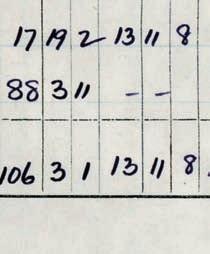 17 19 2 13 11 8
88 3 11 - -
106 3 1 13 11 8